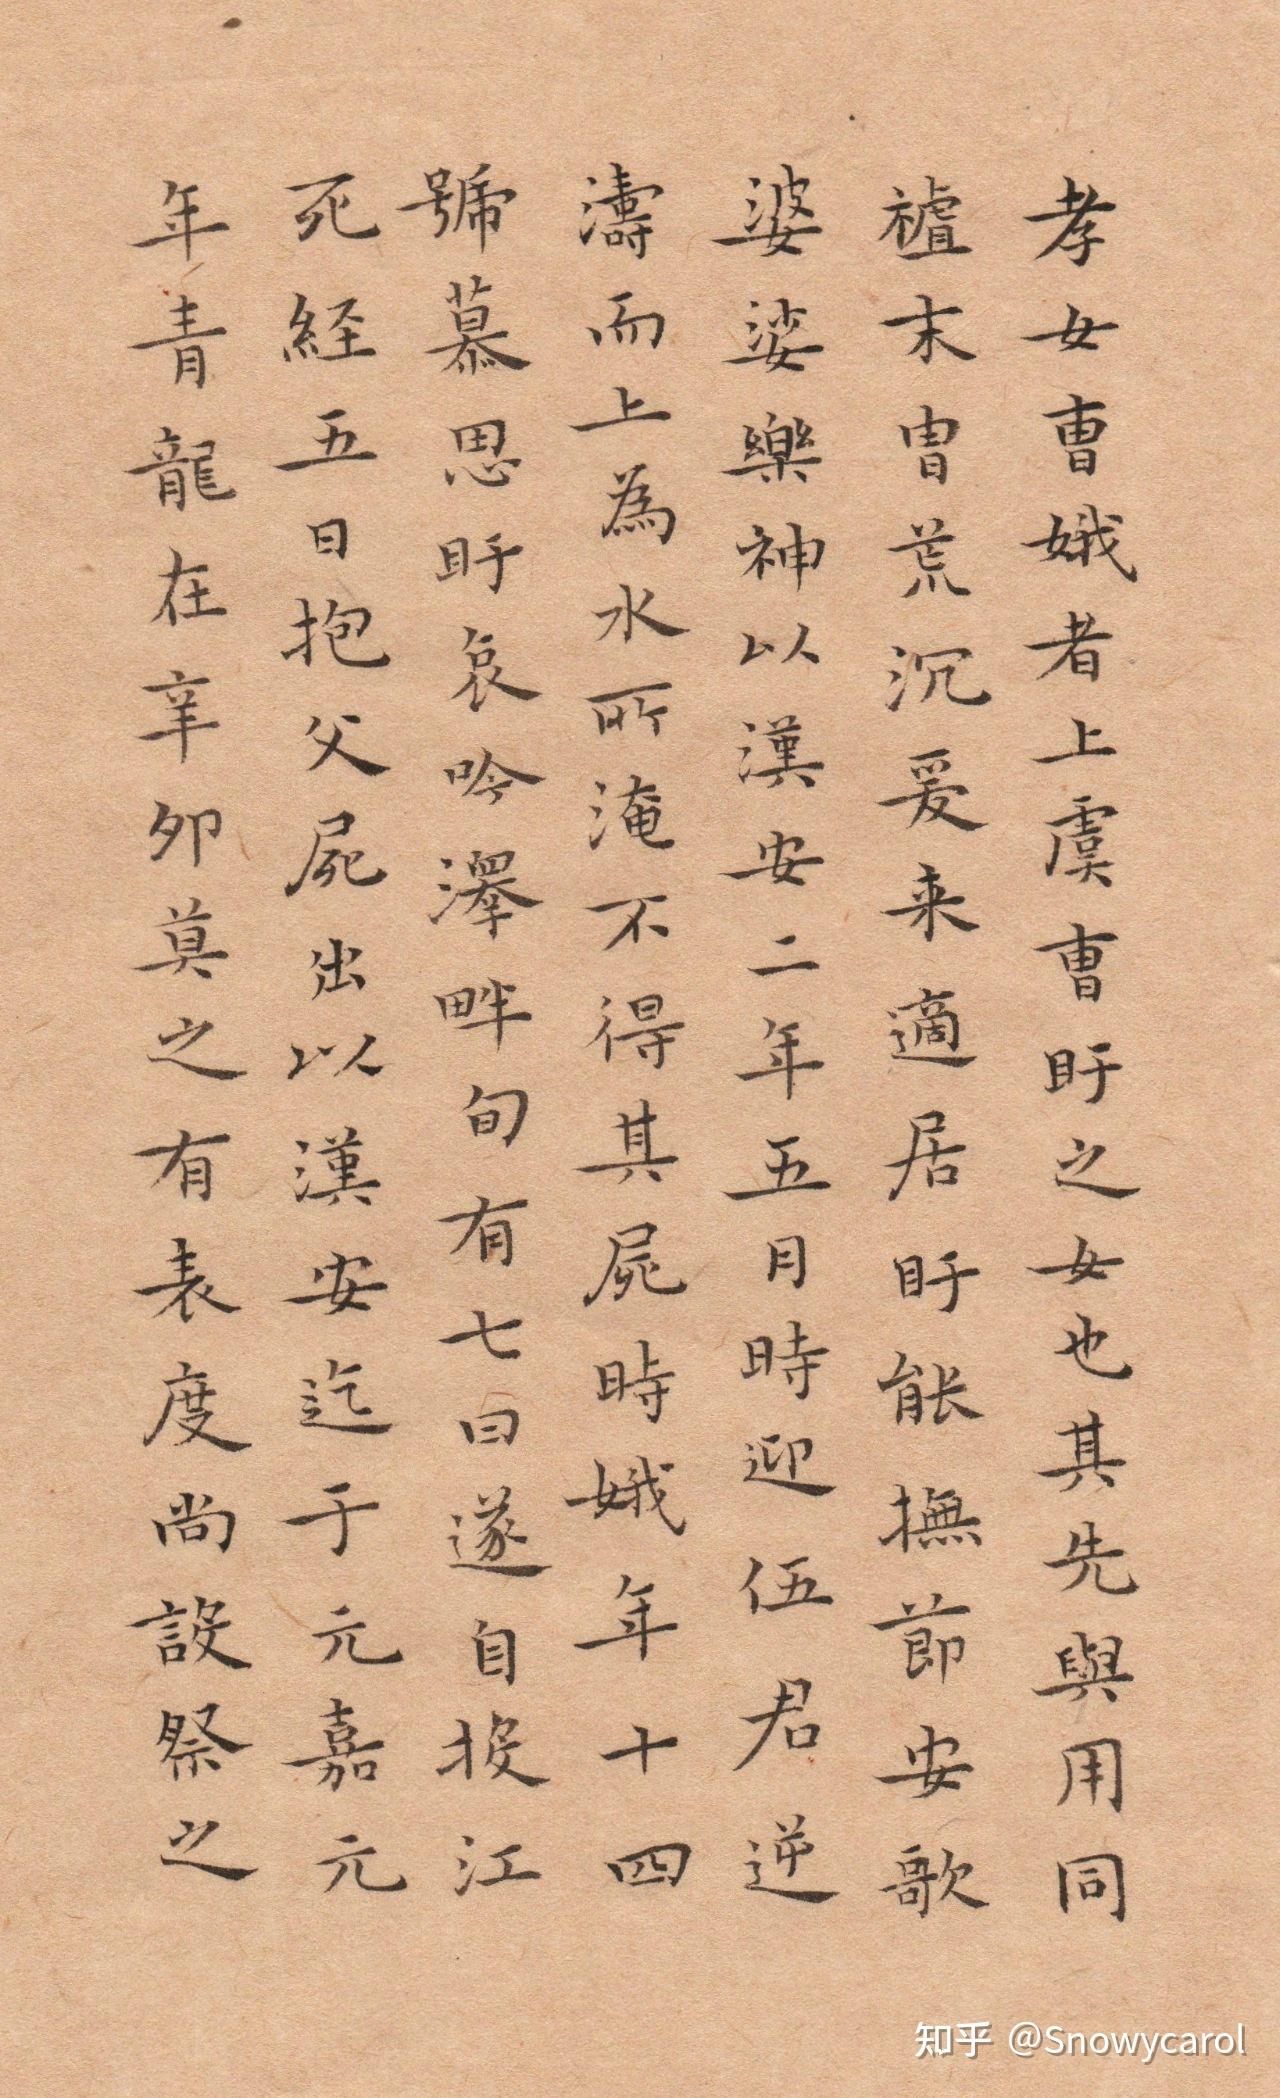 孝女曺娥者上虞曺盱之女也其先與周同
禇末胄荒沉爰来適居盱能撫節安歌
婆娑樂神以漢安二年五月時迎伍君逆
濤而上為水所淹不得其屍時娥年十四
號慕思盱哀吟澤畔旬有七日遂自投江
死経五日抱父屍出以漢安迄于元嘉元
年青龍在辛卯莫之有表度尚設祭之
知乎 @Snowycarol